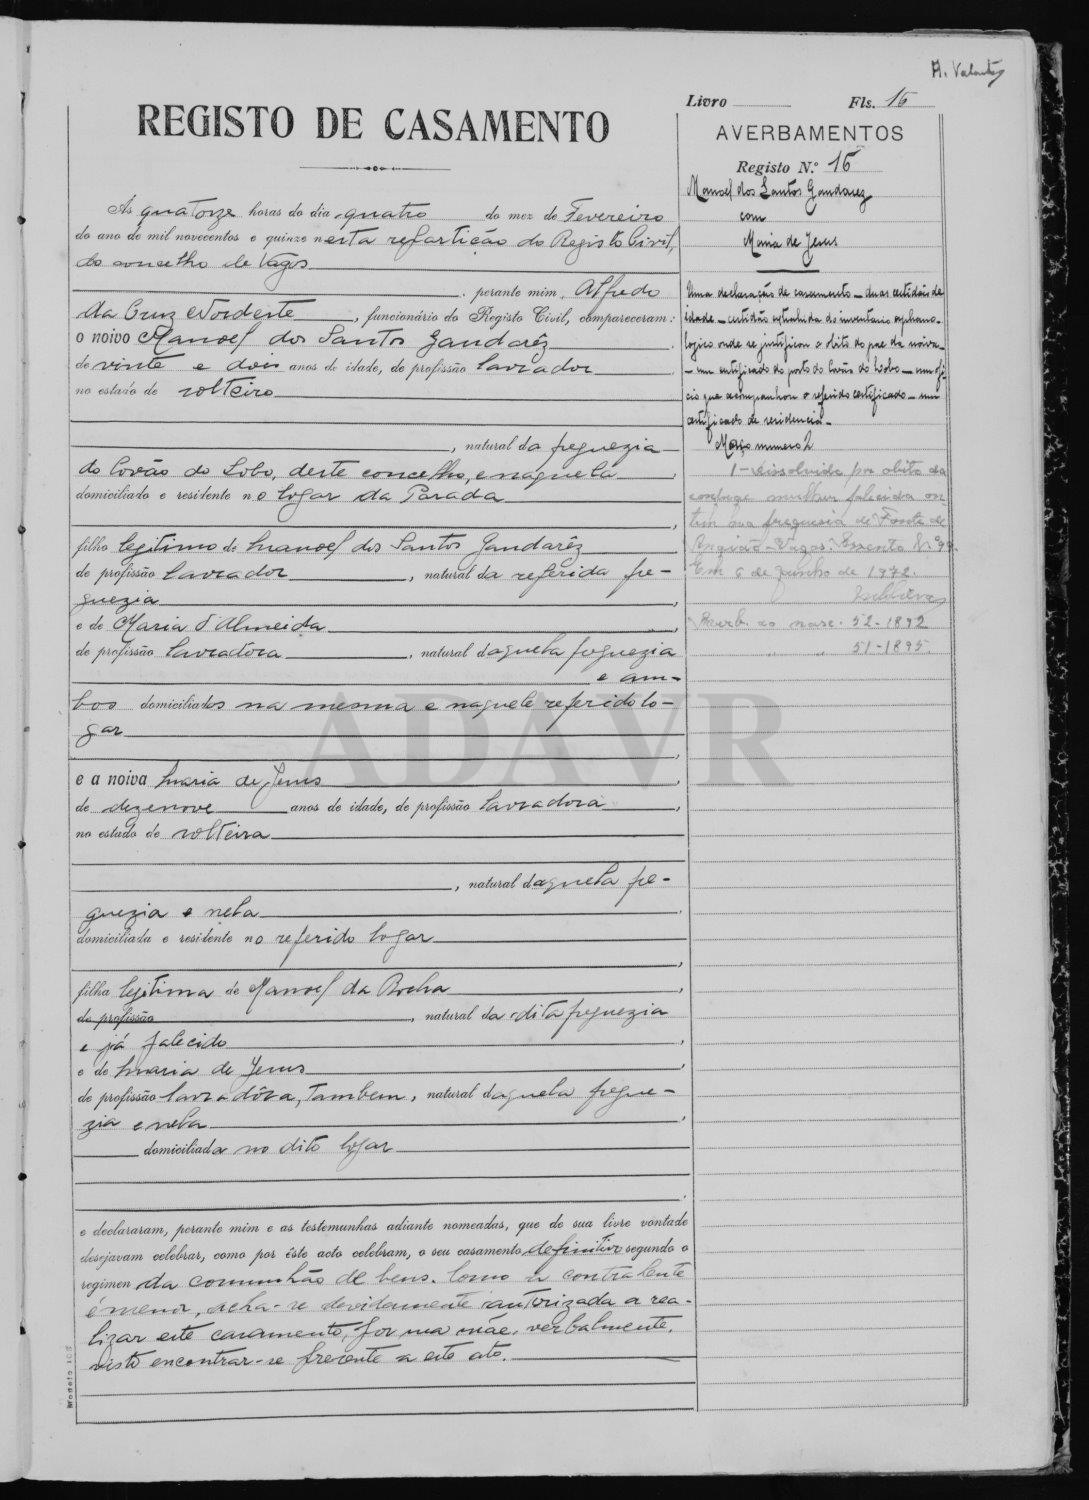 A. Valente
Livro Fls. 15
REGISTO DE CASAMENTO
AVERBAMENTOS
Registo N.º 15
Manoel dos Santos Gandarez
com
Maria de Jesus
Ás quatorze horas do dia quatro do mez de Fevereiro
do ano de mil novecentos e quinze nesta repartição do Registo Civil,
do concelho de Vagos
perante mim, Alfredo
da Cruz Nordeste, funcionário do Registo Civil, compareceram:
o noivo Manoel dos Santos Gandaréz
de vinte e dois anos de idade, de profissão lavrador
no estado de solteiro
, natural da freguezia
do Covão do Lobo, deste concelho, e naquela
domiciliado e residente no logar da Parada
filho legitimo de Manoel dos Santos Gandaréz
de profissão lavrador, natural da referida fre-
guezia
e de Maria d'Almeida
de profissão lavradora, natural daquela freguezia
e am-
bos domiciliados na mesma e naquele referido lo-
gar
e a noiva Maria de Jesus
de dezenove anos de idade, de profissão lavradora
no estado de solteira
, natural daquela fre-
guezia e nela
domiciliada e residente no referido logar
filha legitima de Manoel da Rocha
de profissão , natural da dita freguezia
e já falecido
e de Maria de Jesus
de profissão lavradôra, tambem, natural daquela fregue-
zia e nela
domiciliada no dito logar
e declararam, perante mim e as testemunhas adiante nomeadas, que de sua livre vontade
desejavam celebrar, como por êste acto celebram, o seu casamento definitivo segundo o
regimen da comunhão de bens. Como a contraente
é menor, acha-se devidamente autorizada a rea-
lizar este casamento, por sua mãe, verbalmente,
visto encontrar-se prezente a este ato.
Modelo 103
Uma declaração de casamento - duas certidões de
idade - certidão extrahida do inventario orphano-
logico onde se justificou o obito do pae da noiva -
- um certificado do posto do Covão do Lobo - um ofi-
cio que acompanhou o referido certificado - um
certificado de residencia -
Maço numero 2
1 - Dissolvido por obito da
conjuge mulher falecida on
tem na freguesia de Fonte de
Angeão - Vagos. Assento N.º
Em 6 de Junho de 1972.
Averb. ao nasc. 52-1892
" " 51-1895
ADAVR